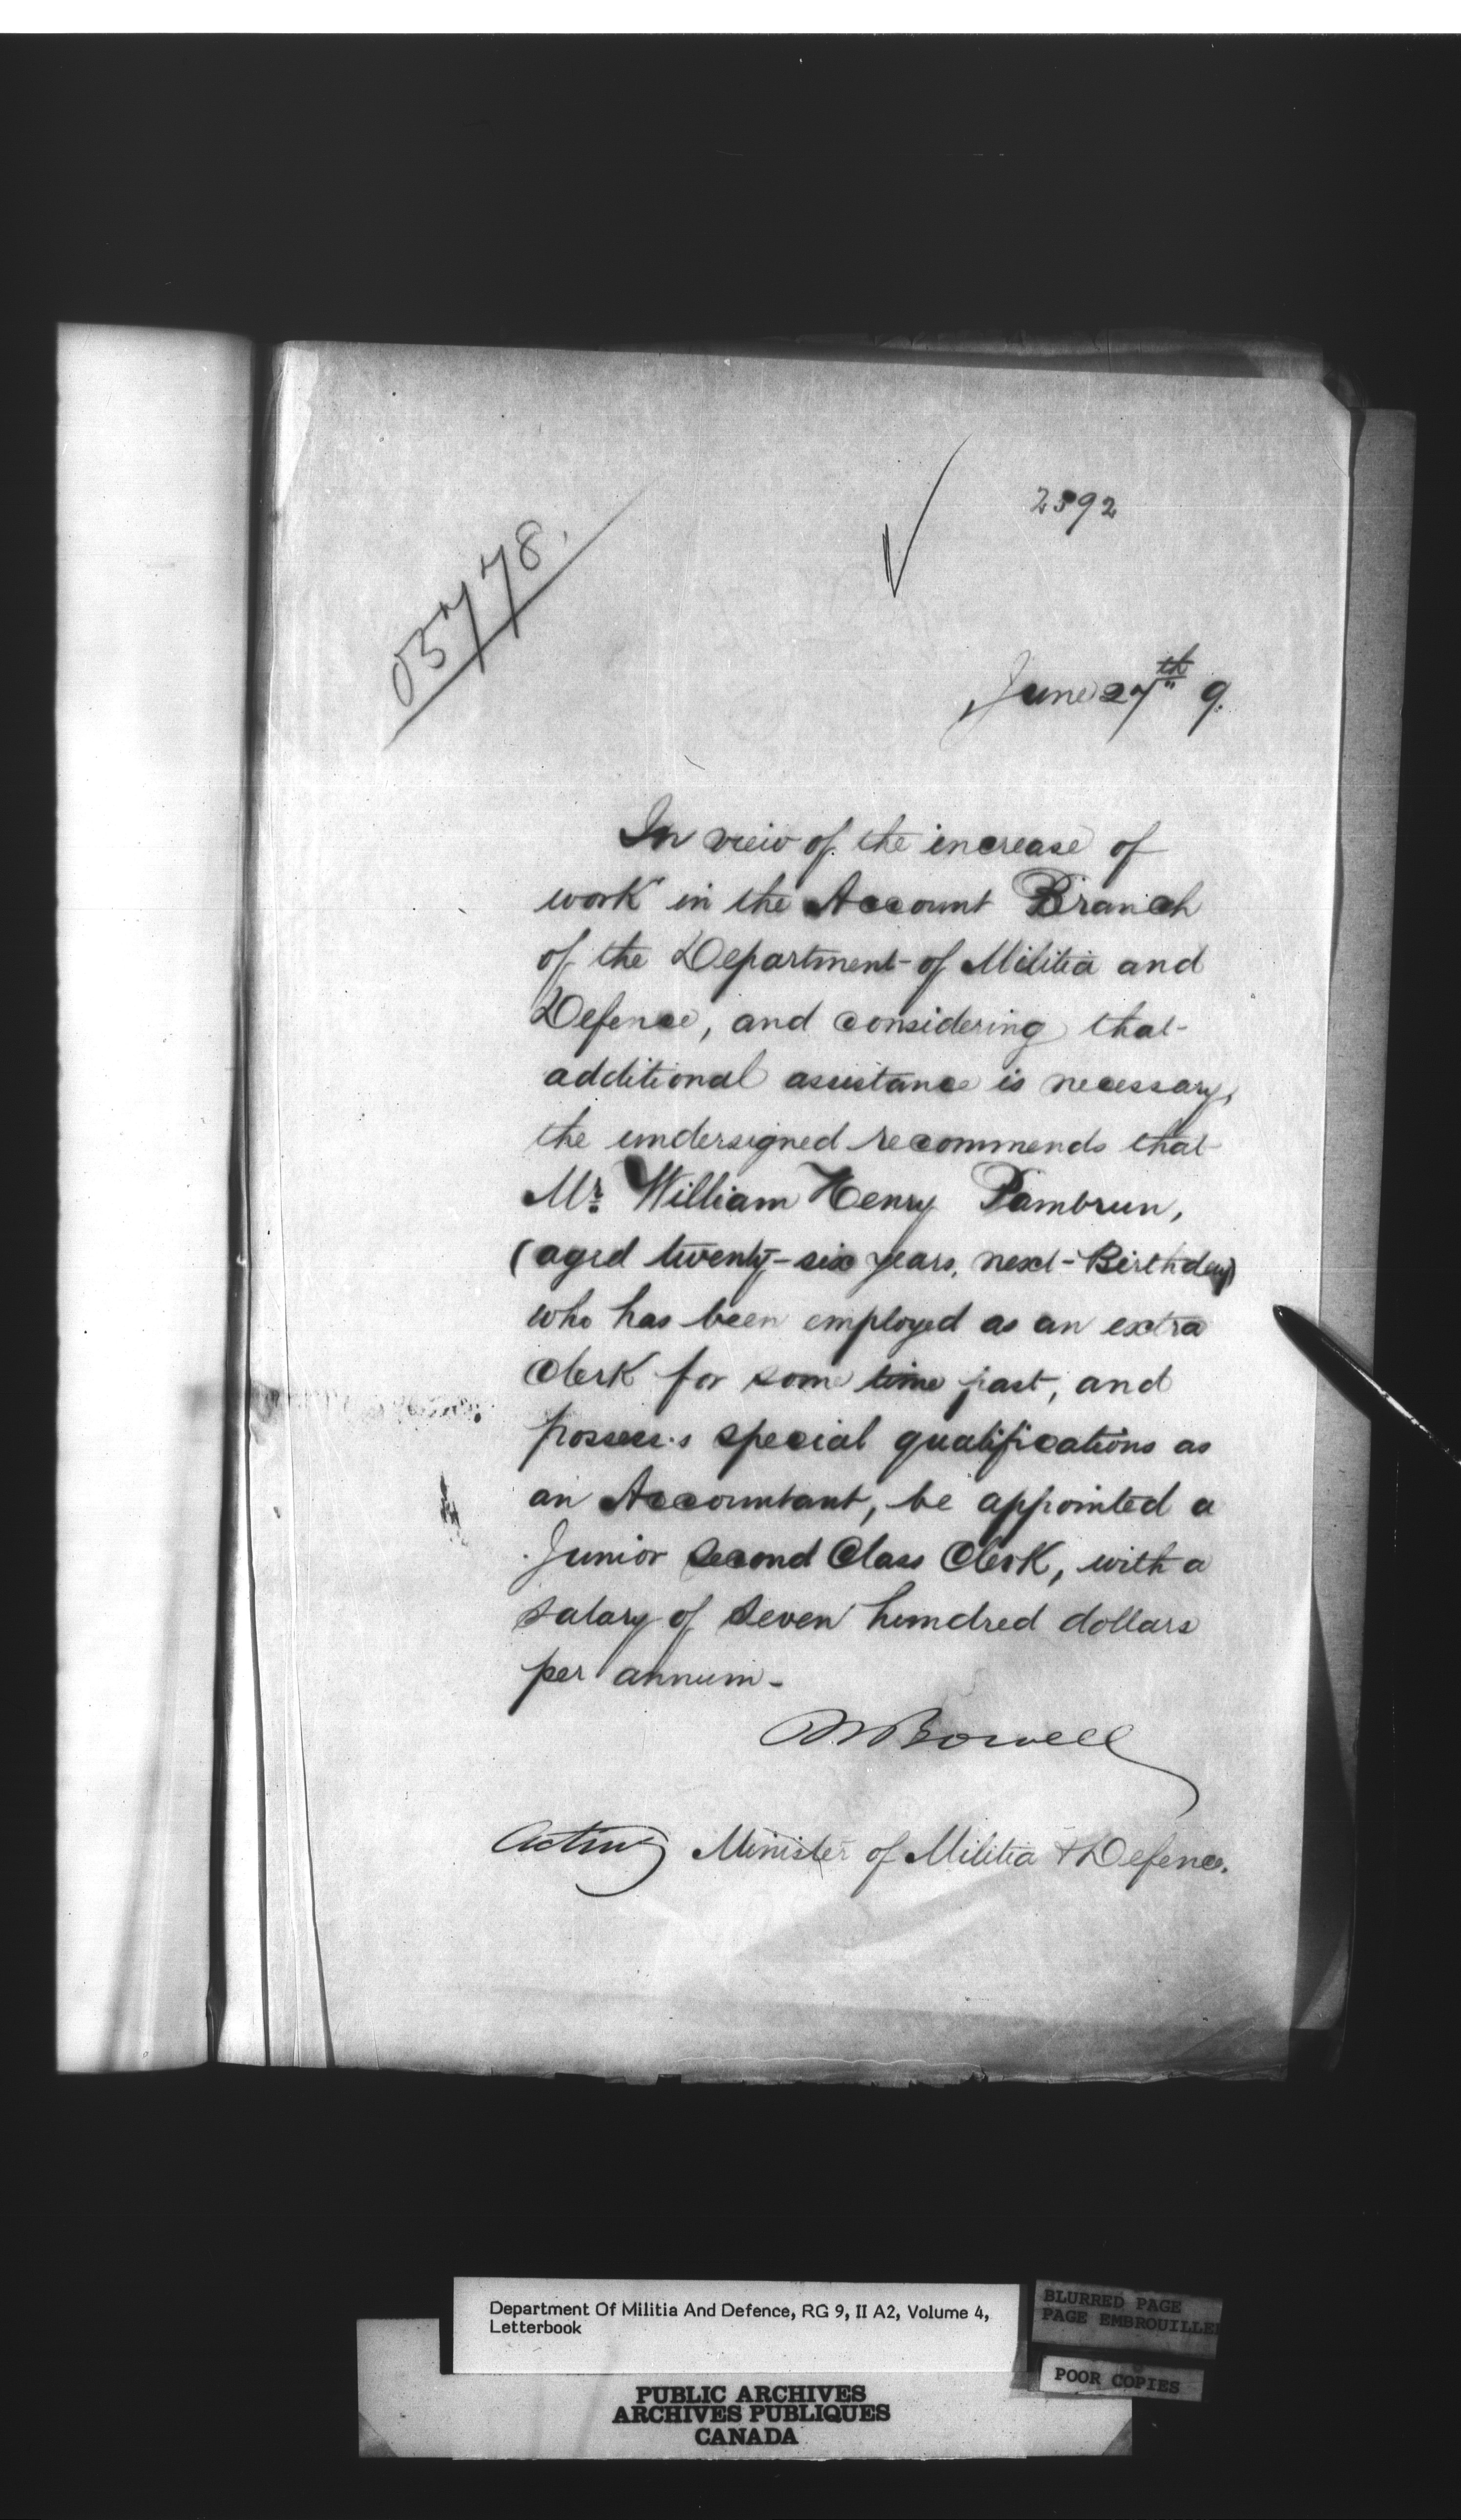 2592
05778.
June 27th 9.
In view of the increase of
work in the Account Branch
of the Department of Militia and
Defence, and considering that
additional assistance is necessary,
the undersigned recommends that
Mr. William Henry Pambrun,
(aged twenty-six years, next Birthday)
who has been employed as an extra
Clerk for some time past, and
possess's special qualifications as
an Accountant, be appointed a
Junior Second Class Clerk, with a
salary of Seven hundred dollars
per annum -
M Bowell
Acting Minister of Militia & Defence.
Department Of Militia And Defence, RG 9, II A2, Volume 4,
Letterbook
BLURRED PAGE
PAGE EMBROUILLE
POOR COPIES
PUBLIC ARCHIVES
ARCHIVES PUBLIQUES
CANADA